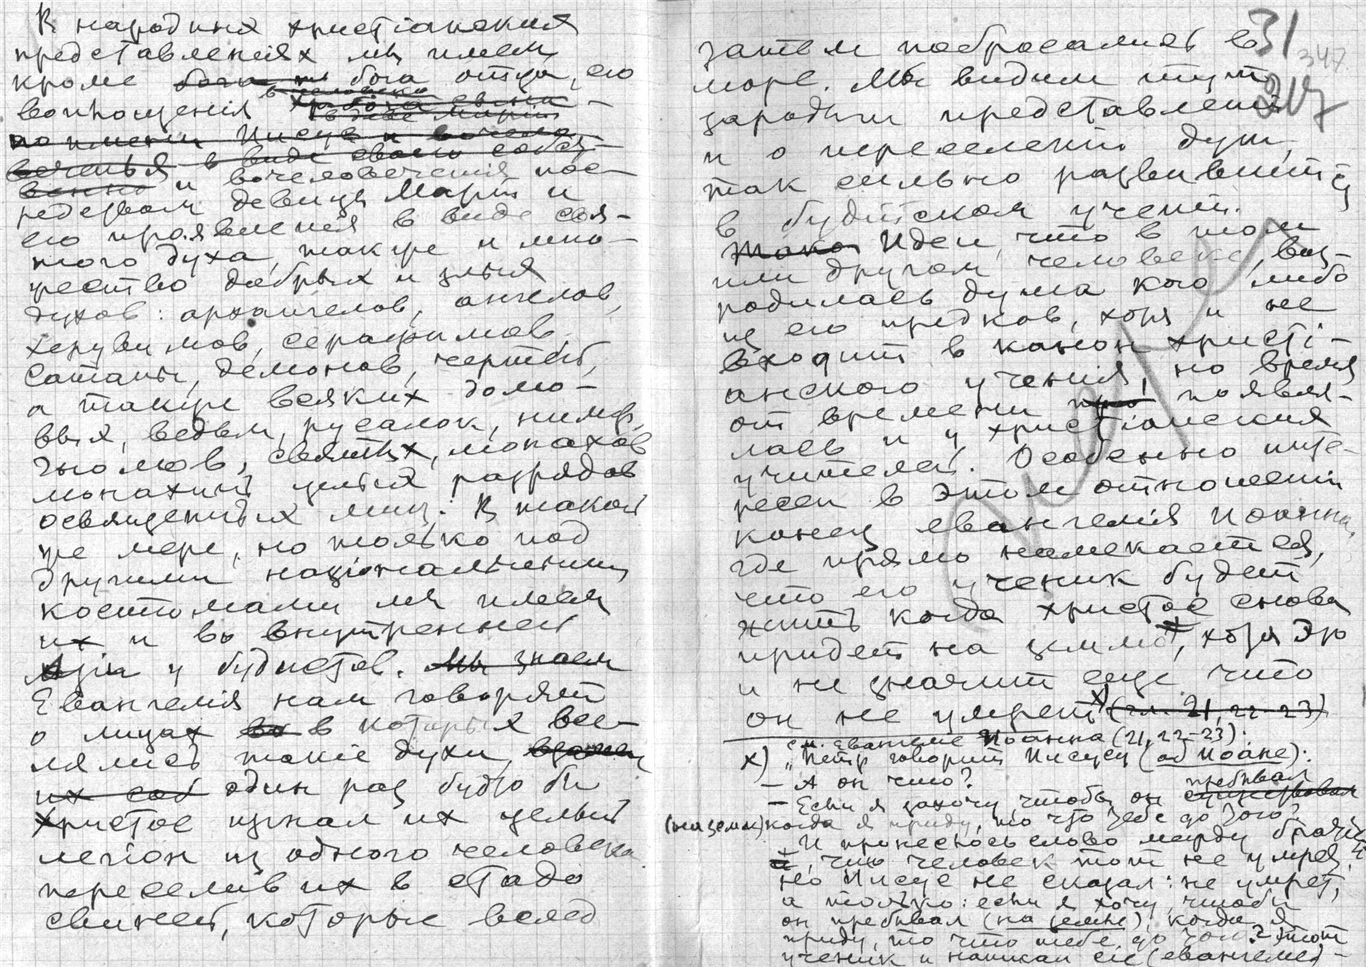 В народных христіанских
представленіях мы имеем
кроме бога отца, его
воплощенія в человека
по имени Иисус и вочело-
веченья в виде своего собст-
венно и вочеловеченія пос-
редством девицы Маріи и
его проявленія в виде свя-
того духа, также и мно-
жество добрых и злых
духов: архангелов, ангелов,
херувимов, серафимов,
сатаны, демонов, чертей,
а также всяких домо-
вых, ведьм, русалок, нимф,
гномов, святых, монахов
монахинь целых разрядов
освященных лиц. В такой
же мере, но только под
другими національными
костюмами мы имеем
их и во внутренней
Азіи у будистов. Мы знаем
Евангелія нам говорят
о лицах в которых все-
лялись такіе духи,
их соб один раз будто бы
Христос изгнал их целый
легіон из одного человека
переселив их в стадо
свиней, которые вслед
31
347
317
затем побросались в
море. Мы видим тут
зародыши представленій
и о переселеніи душ,
так сильно развившійся
в будійском ученіи.
Така Идеи, что в том
или другом человеке воз-
родилась душа кого либо
из его предков, хотя и не
входит в канон христі-
анского ученія, но время
от времени про появля-
лась и у христіанских
учителей. Особенно инте-
ресен в этом отношеніи
конец евангелія Иоанна,
где прямо намекается,
что его ученик будет
жить когда христос снова
придет на землю, хотя это
и не значит еще что
он не умрет x) (гл. 21, 22-23)
см. Евангеліе Иоанна (21, 22-23):
x) „Петр говорит Иисусу (об Иоане):
— А он что?
— Если я захочу чтобы он существовал пребывал
(на земле) когда я приду, то что тебе до того?
И пронеслось слово между братьями
, что человек тот не умрет,
но Иисус не сказал: не умрет,
а только: если я хочу, чтобы
он пребывал (на земле) когда я
приду, то что тебе до того? Этот
ученик и написал сіе (евангеліе) —